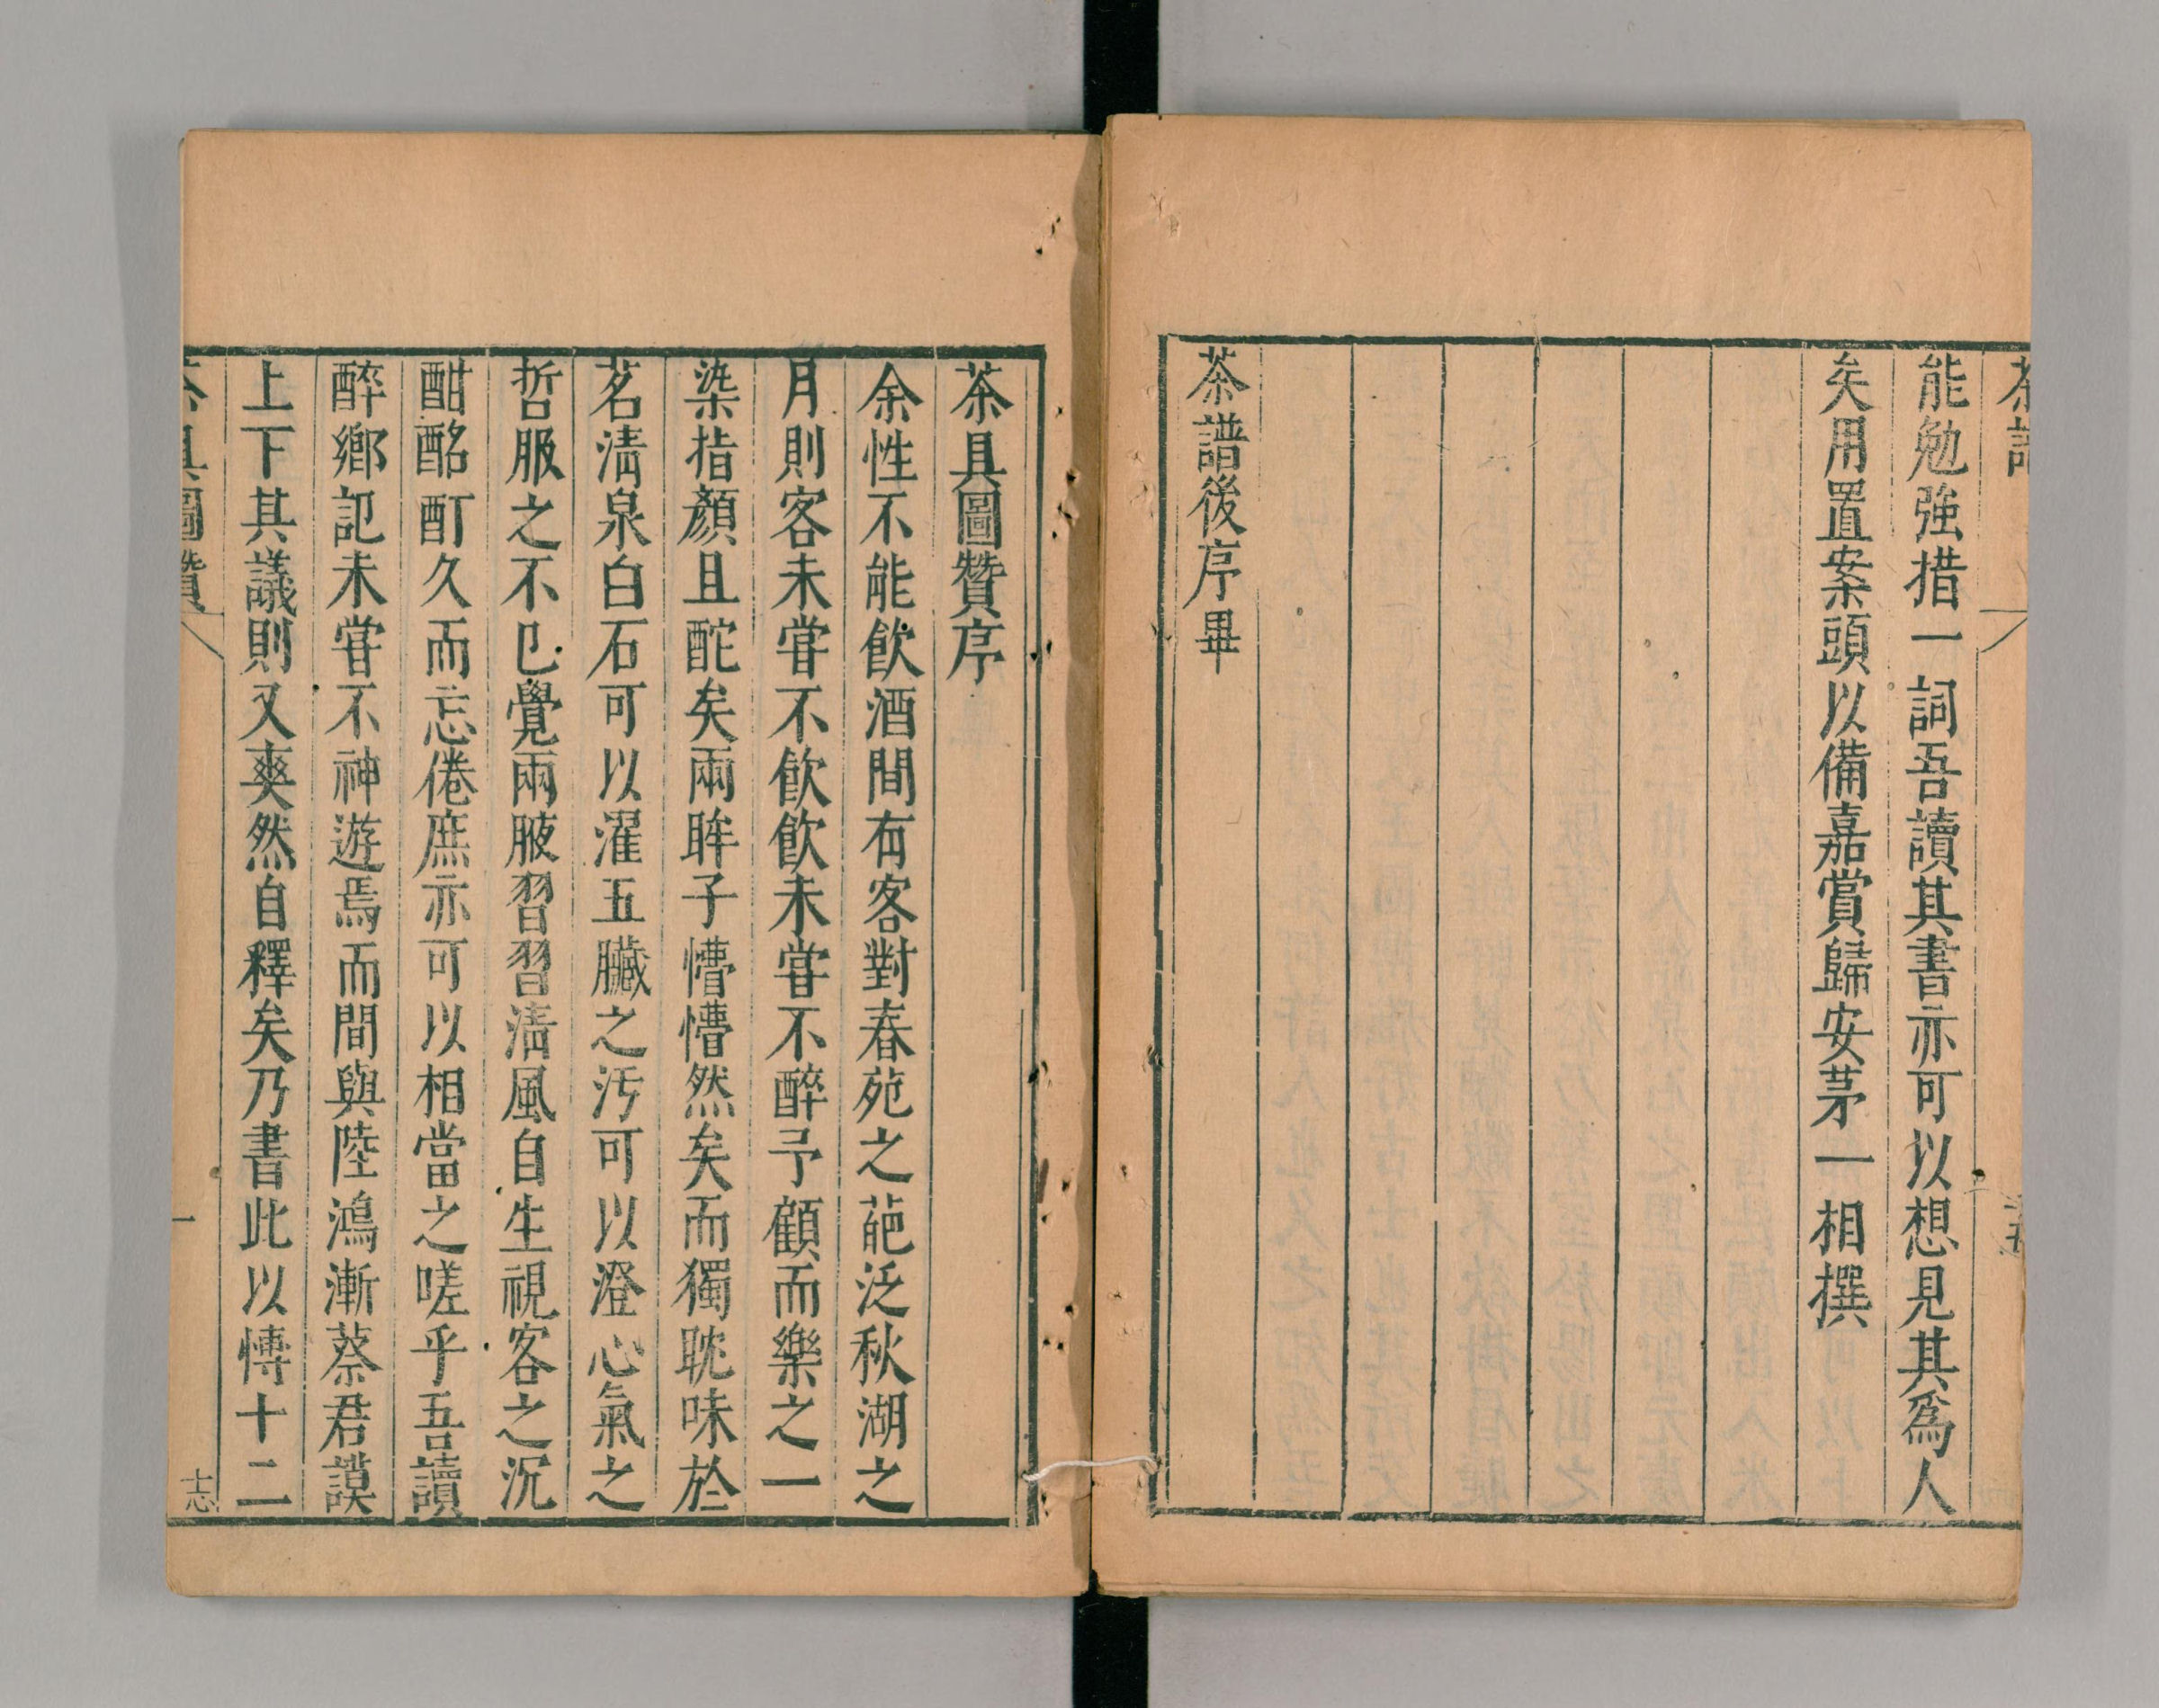 茶譜
能勉強措一詞吾讀其書亦可以想見其爲人
矣用置案頭以備嘉賞歸安茅一相撰
茶譜後序畢
茶具圖贊序
余性不能飲酒間有客對春苑之葩泛秋湖之
月則客未嘗不飲飲未嘗不醉予顧而樂之一
染指顏且酡矣兩眸子懵懵然矣而獨耽味於
茗清泉白石可以濯五臟之汚可以澄心氣之
哲服之不已覺兩腋習習清風自生視客之沉
酣酩酊久而忘倦庶亦可以相當之嗟乎吾讀
醉鄉記未嘗不神遊焉而間與陸鴻漸蔡君謨
上下其議則又爽然自釋矣乃書此以慱十二
茶具圖贊
一
志